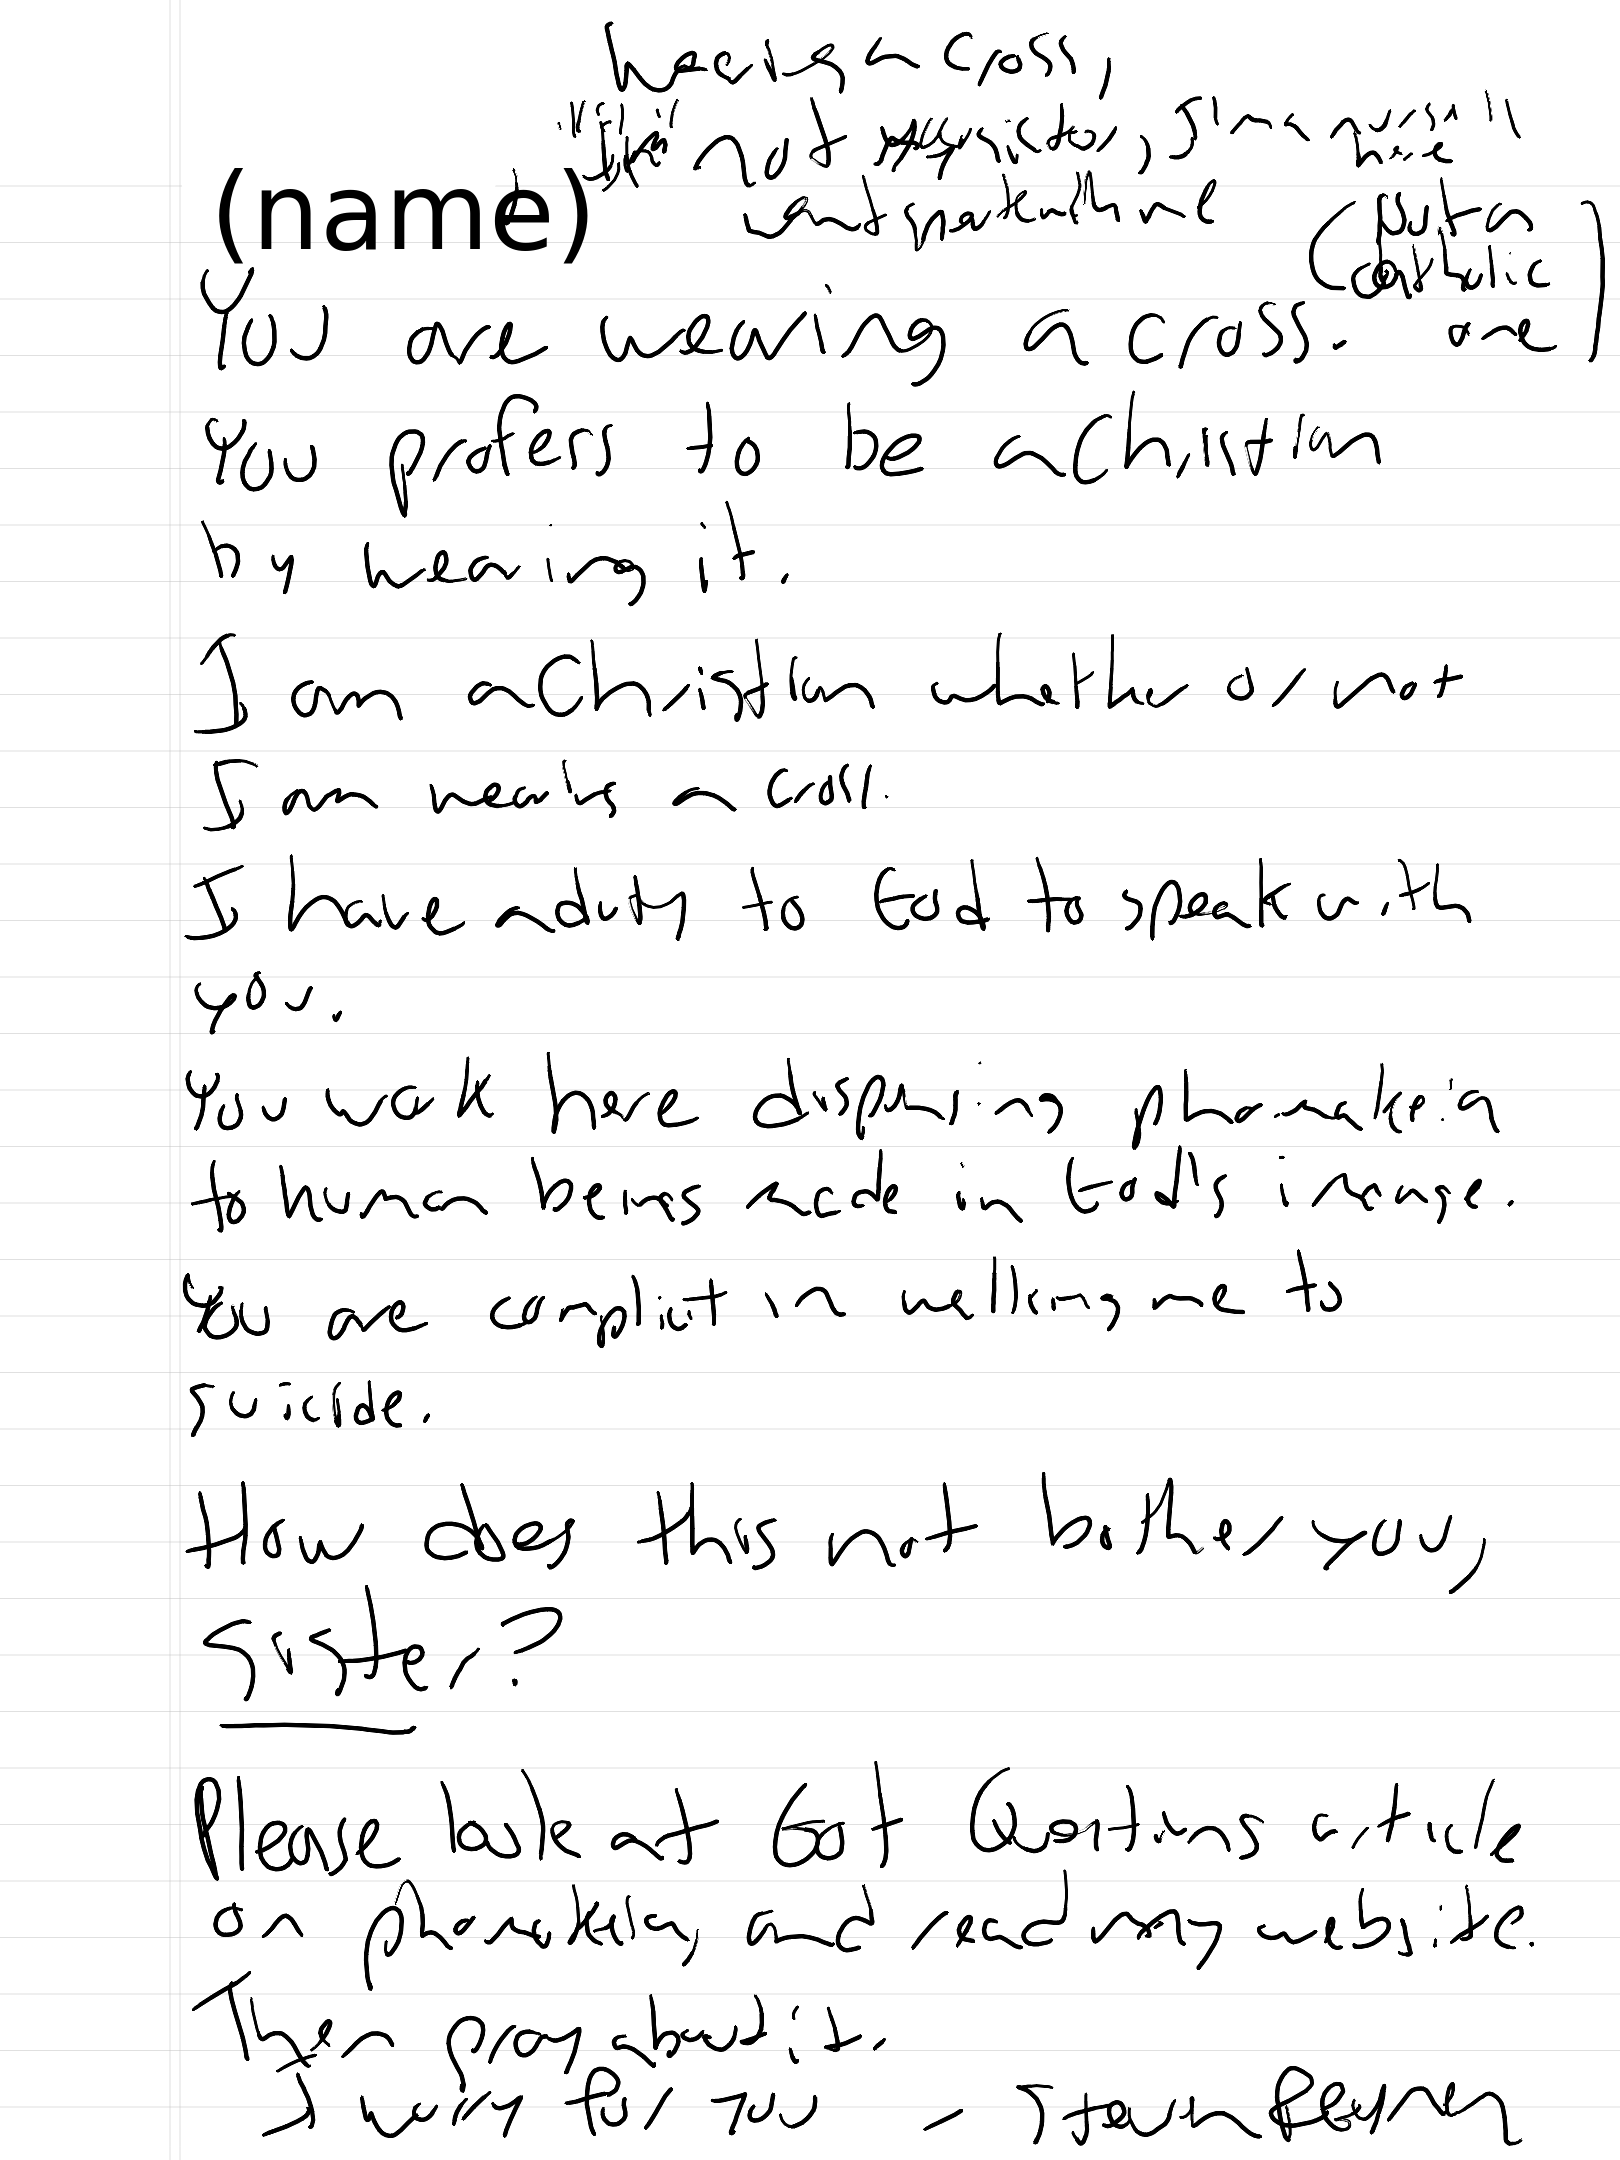 wearing a cross,
not my sister, I'm a nurse"
here
wont speak with me
(name)
(Not a
catholic
one)
You are wearing a cross.
You profess to be a Christian
by wearing it.
I am a Christian whether or not
I am wearing a cross.
I have a duty to God to speak with
you.
You work here dispensing pharmakeia
to human beings made in God's image.
You are complicit in walking me to
suicide.
How does this not bother you,
sister?
Please look at Got Questions article
on pharmakeia, and read my website.
Then pray about it.
I worry for you - Steven